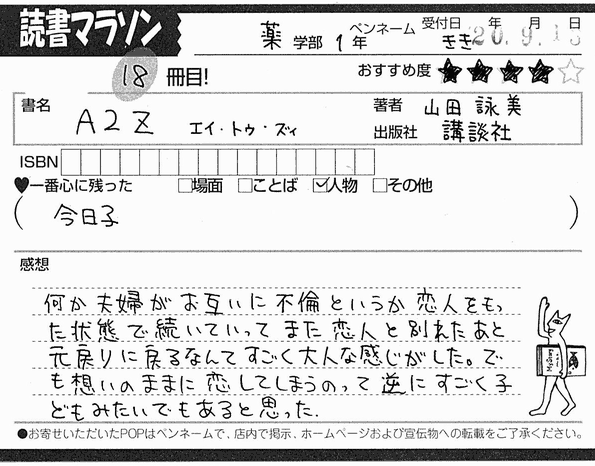 読書マラソン
薬 学部 1年 ペンネーム きき 受付日 年 月 日
20.9.15
18 冊目! おすすめ度 ★★★★☆
書名 A2Z エイ・トゥ・ズィ
著者 山田 詠美
出版社 講談社
ISBN
♥一番心に残った □場面 □ことば ☑人物 □その他
( 今日子 )
感想
何か夫婦がお互いに不倫というか恋人をもっ
た状態で続いていってまた恋人と別れたあと
元戻りに戻るなんてすごく大人な感じがした。で
も想いのままに恋してしまうのって逆にすごく子
どもみたいでもあると思った.
●お寄せいただいたPOPはペンネームで、店内で掲示、ホームページおよび宣伝物への転載をご了承ください。